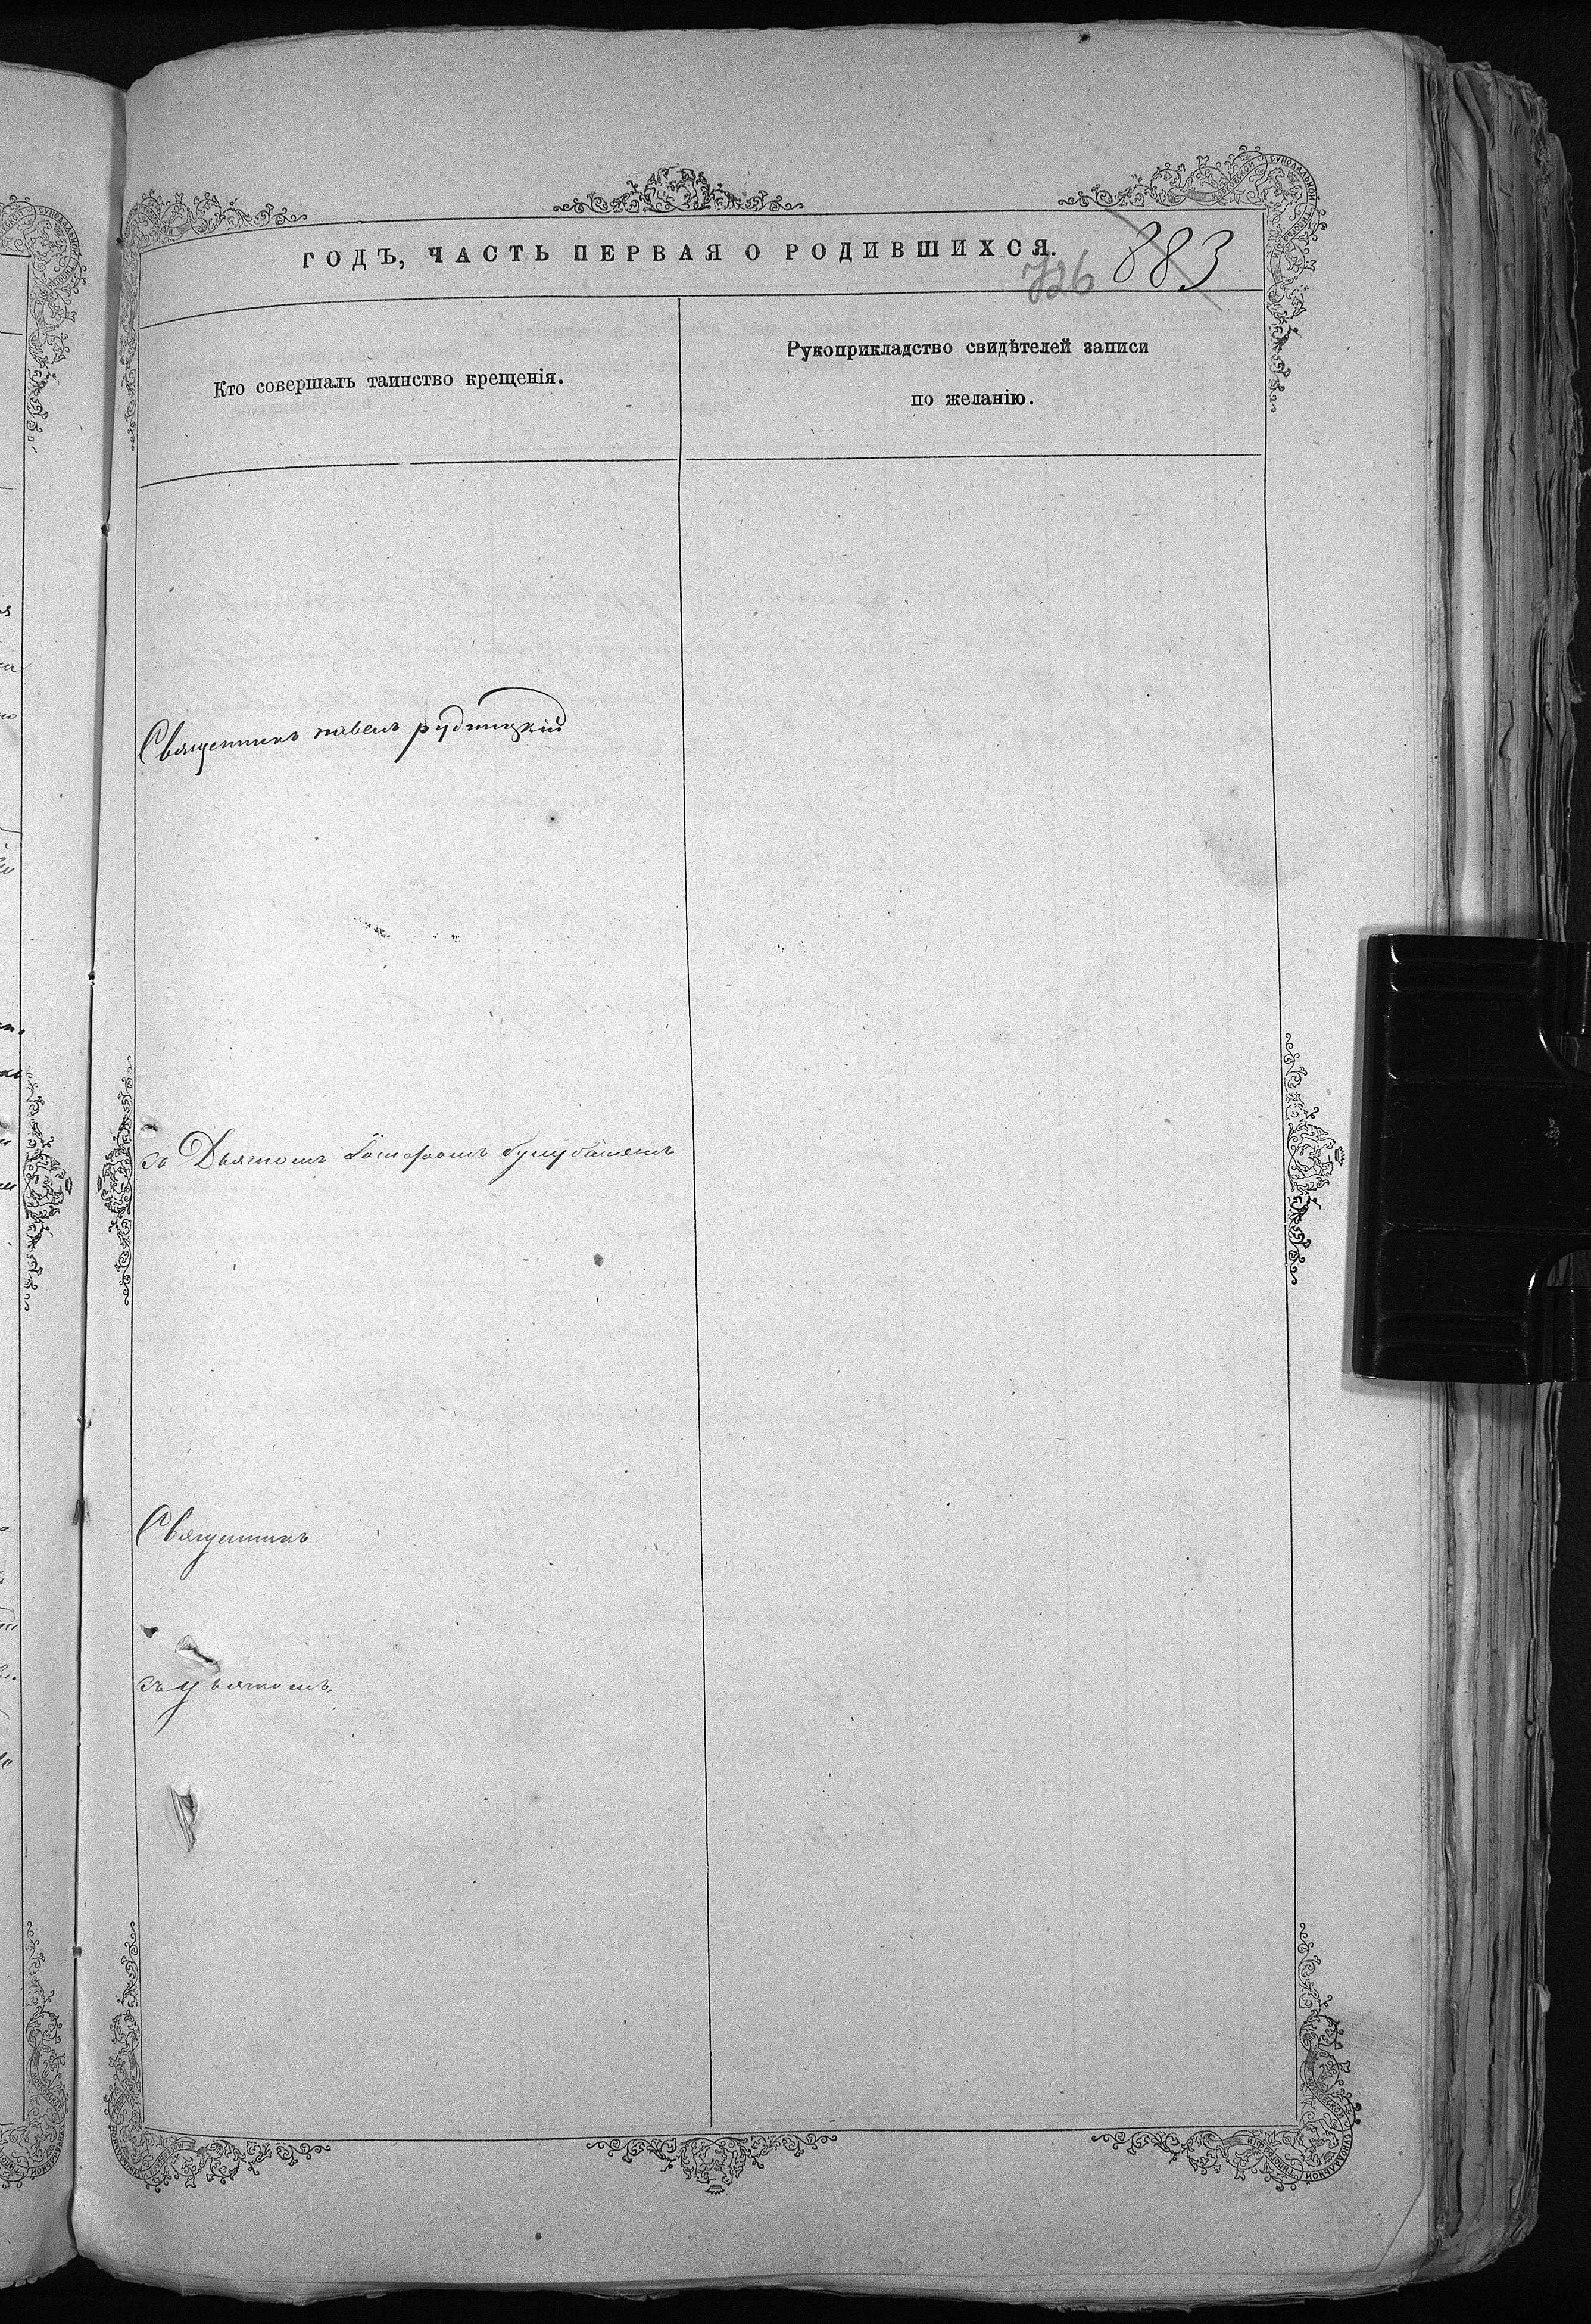 ГОДЪ, ЧАСТЬ ПЕРВАЯ О РОДИВШИХСЯ.
883
726
Кто совершалъ таинство крещенія.
Рукоприкладство свидѣтелей записи
по желанію.
Священникъ павелъ рудницкій
съ Дьячкомъ
Священникъ
съ